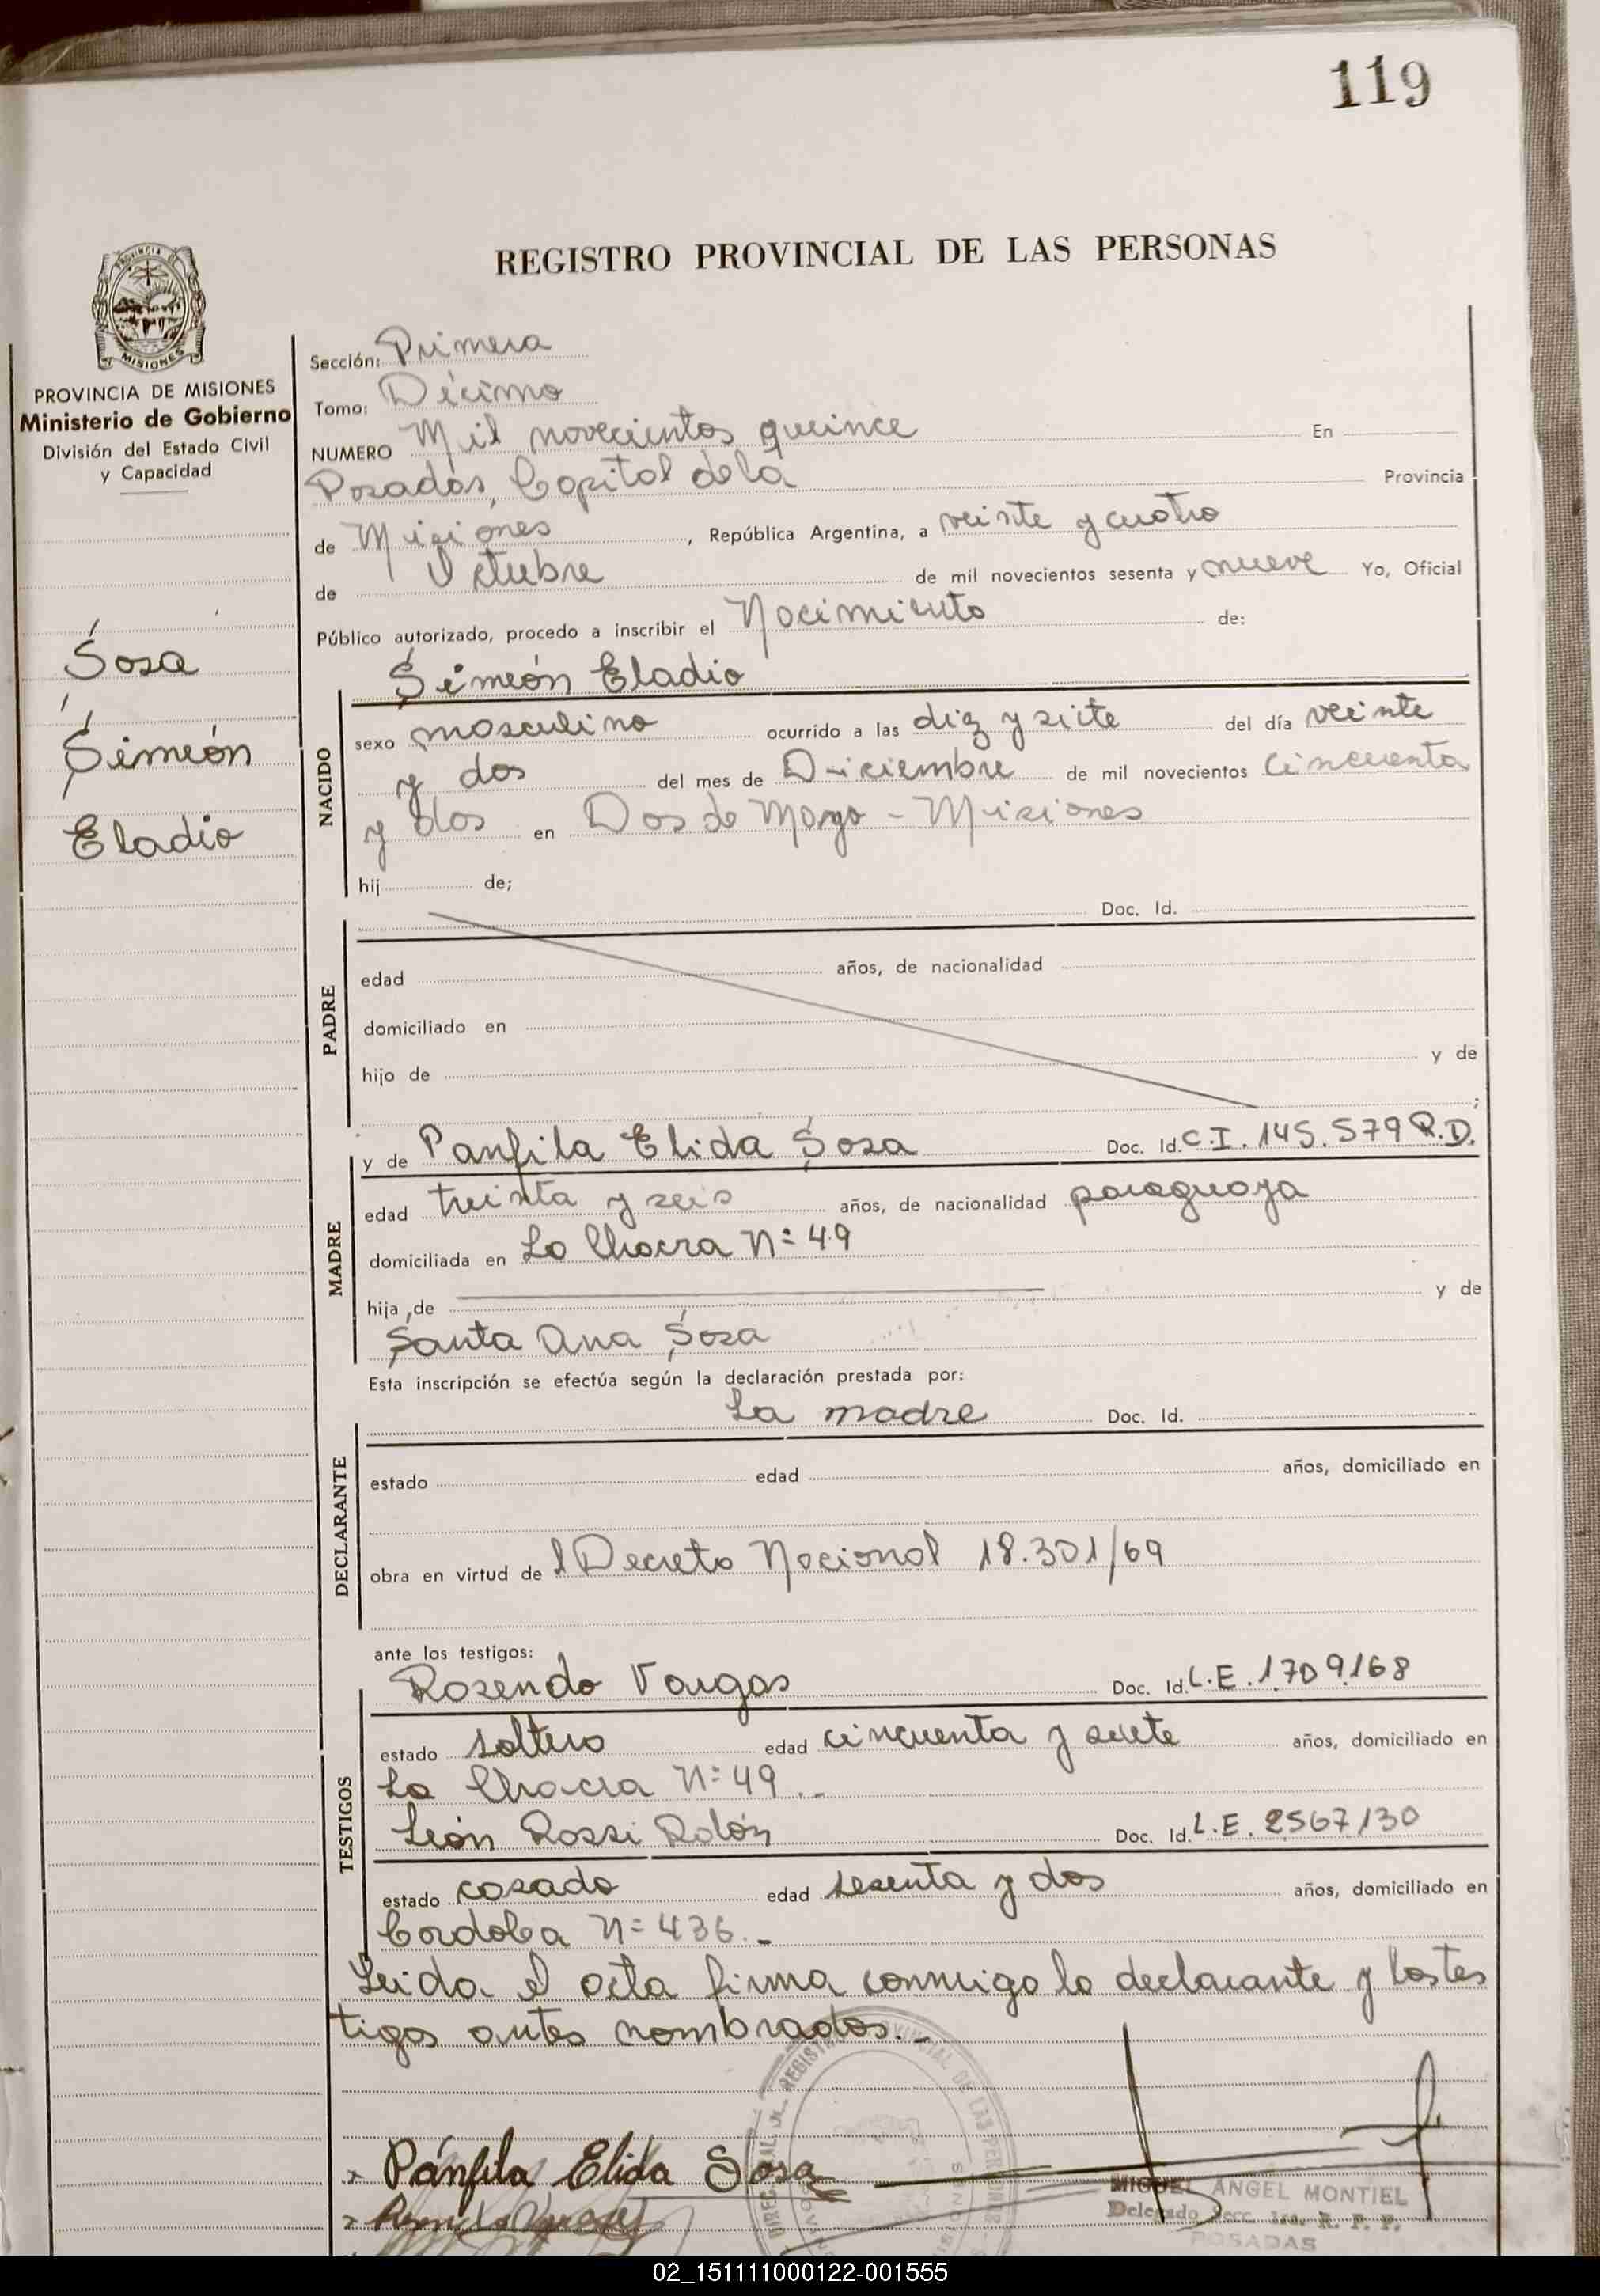 119
REGISTRO PROVINCIAL DE LAS PERSONAS
PROVINCIA DE
MISIONES
PROVINCIA DE MISIONES
Ministerio de Gobierno
División del Estado Civil
y Capacidad
Sosa
Simeón
Eladio
Sección: Primera
Tomo: Décimo
NUMERO Mil novecientos quince En
Posadas, Capital de la Provincia
de Misiones, República Argentina, a veinte y cuatro
de Octubre de mil novecientos sesenta y nueve Yo, Oficial
Público autorizado, procedo a inscribir el Nacimiento de:
NACIDO
Simeón Eladio
sexo masculino ocurrido a las diez y siete del día veinte
y dos del mes de Diciembre de mil novecientos cincuenta
y dos en Dos de Mayo - Misiones
hij de;
PADRE
Doc. Id.
edad años, de nacionalidad
domiciliado en
hijo de y de
;
MADRE
y de Panfila Elida Sosa Doc. Id. C.I. 145.579 R.D.
edad treinta y seis años, de nacionalidad paraguaya
domiciliada en La Chacra N: 49
hija de y de
Santa Ana Sosa
Esta inscripción se efectúa según la declaración prestada por:
DECLARANTE
La madre Doc. Id.
estado edad años, domiciliado en
obra en virtud de l Decreto Nacional 18.301/69
ante los testigos:
TESTIGOS
Rosendo Vargas Doc. Id. L.E. 1709168
estado soltero edad cincuenta y siete años, domiciliado en
La Chacra N: 49.-
León Rossi Rolón Doc. Id. L.E. 2567130
estado casado edad sesenta y dos años, domiciliado en
Cordoba N= 436.-
Leida el acta firma conmigo la declarante y los tes
tigos antes nombrados.-
REGISTRO PROVINCIAL DE LAS PERSONAS
Pánfila Elida Sosa
MIGUEL ANGEL MONTIEL
Delegado Secc. 1ra. R. P. P.
POSADAS
02_151111000122-001555